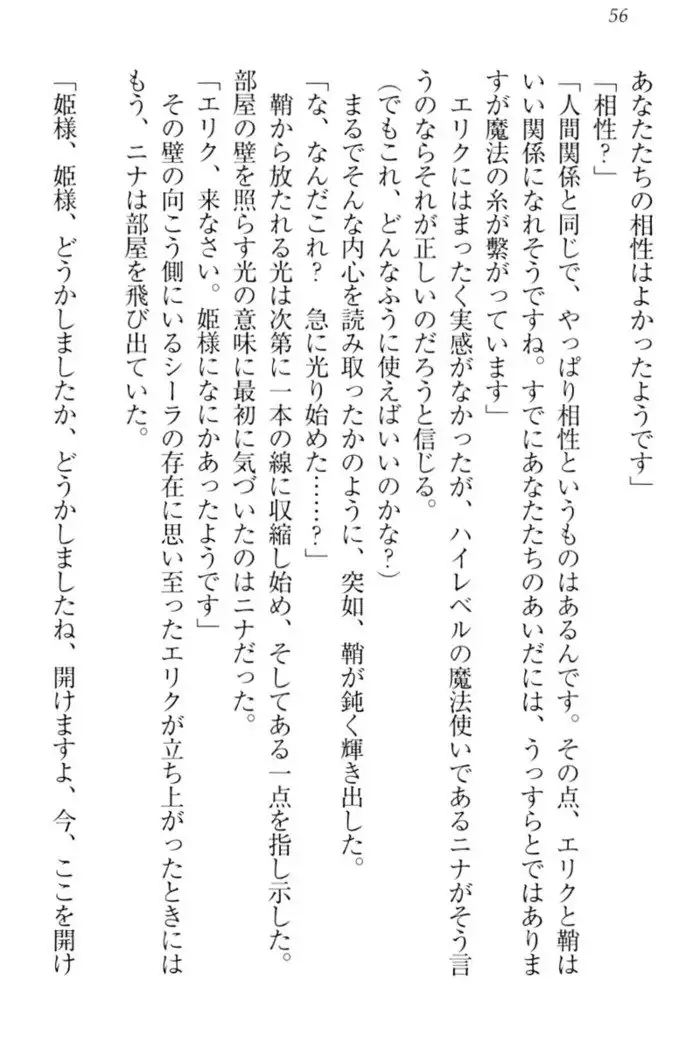 56
あなたたちの相性はよかったようです」
「相性？」
「人間関係と同じで、やっぱり相性というものはあるんです。その点、エリクと鞘は
いい関係になれそうですね。すでにあなたたちのあいだには、うっすらとではありま
すが魔法の糸が繋がっています」
　エリクにはまったく実感がなかったが、ハイレベルの魔法使いであるニナがそう言
うのならそれが正しいのだろうと信じる。
（でもこれ、どんなふうに使えばいいのかな？）
　まるでそんな内心を読み取ったかのように、突如、鞘が鈍く輝き出した。
「な、なんだこれ？　急に光り始めた……？」
　鞘から放たれる光は次第に一本の線に収縮し始め、そしてある一点を指し示した。
部屋の壁を照らす光の意味に最初に気づいたのはニナだった。
「エリク、来なさい。姫様になにかあったようです」
　その壁の向こう側にいるシーラの存在に思い至ったエリクが立ち上がったときには
もう、ニナは部屋を飛び出ていた。
「姫様、姫様、どうかしましたか、どうかしましたね、開けますよ、今、ここを開け